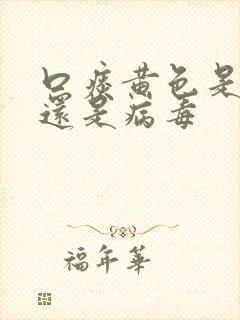 口痰黄色是
還是病毒
福年華